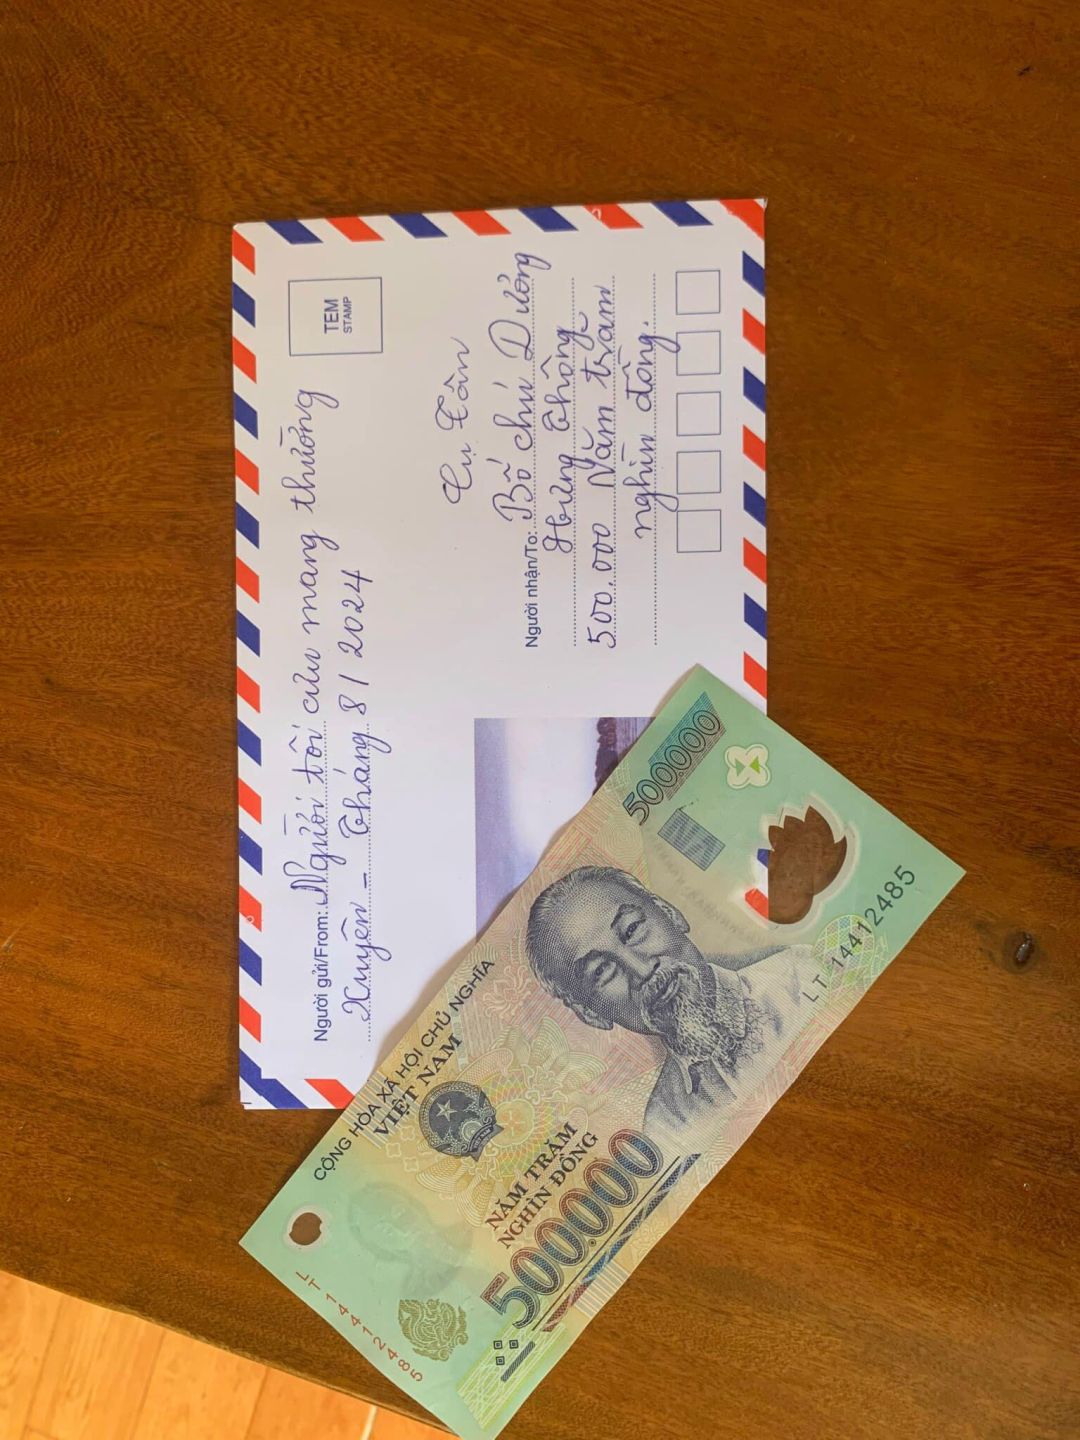 Người gửi/From: Người tôi cưu mang thường
Xuyên - Tháng 8 / 2024
TEM
STAMP
Cụ Tân
Người nhận/To: Bố chú Dưỡng
Hưng Thông
500.000 Năm trăm
nghìn đồng.
CỘNG HÒA XÃ HỘI CHỦ NGHĨA
VIỆT NAM
NĂM TRĂM
NGHÌN ĐỒNG
500.000
500000
LT 14412485
LT 14412485